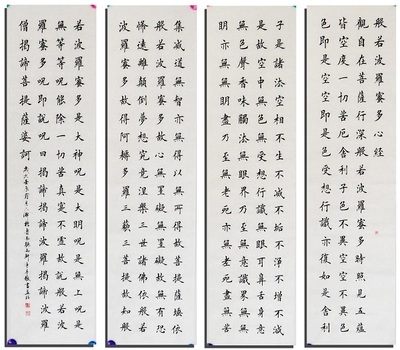 般若波羅蜜多心經
觀自在菩薩行深般若波羅蜜多時照見五蘊
皆空度一切苦厄舍利子色不異空空不異色
色即是空空即是色受想行識亦復如是舍利
子是諸法空相不生不滅不垢不淨不增不減
是故空中無色無受想行識無眼耳鼻舌身意
無色聲香味觸法無眼界乃至無意識界無無
明亦無無明盡乃至無老死亦無老死盡無苦
集滅道無智亦無得以無所得故菩提薩埵依
般若波羅蜜多故心無罣礙無罣礙故無有恐
怖遠離顛倒夢想究竟涅槃三世諸佛依般若
波羅蜜多故得阿耨多羅三藐三菩提故知般
若波羅蜜多是大神呪是大明呪是無上呪是
無等等呪能除一切苦真實不虛故說般若波
羅蜜多呪即說呪曰揭諦揭諦波羅揭諦波羅
僧揭諦菩提薩婆訶